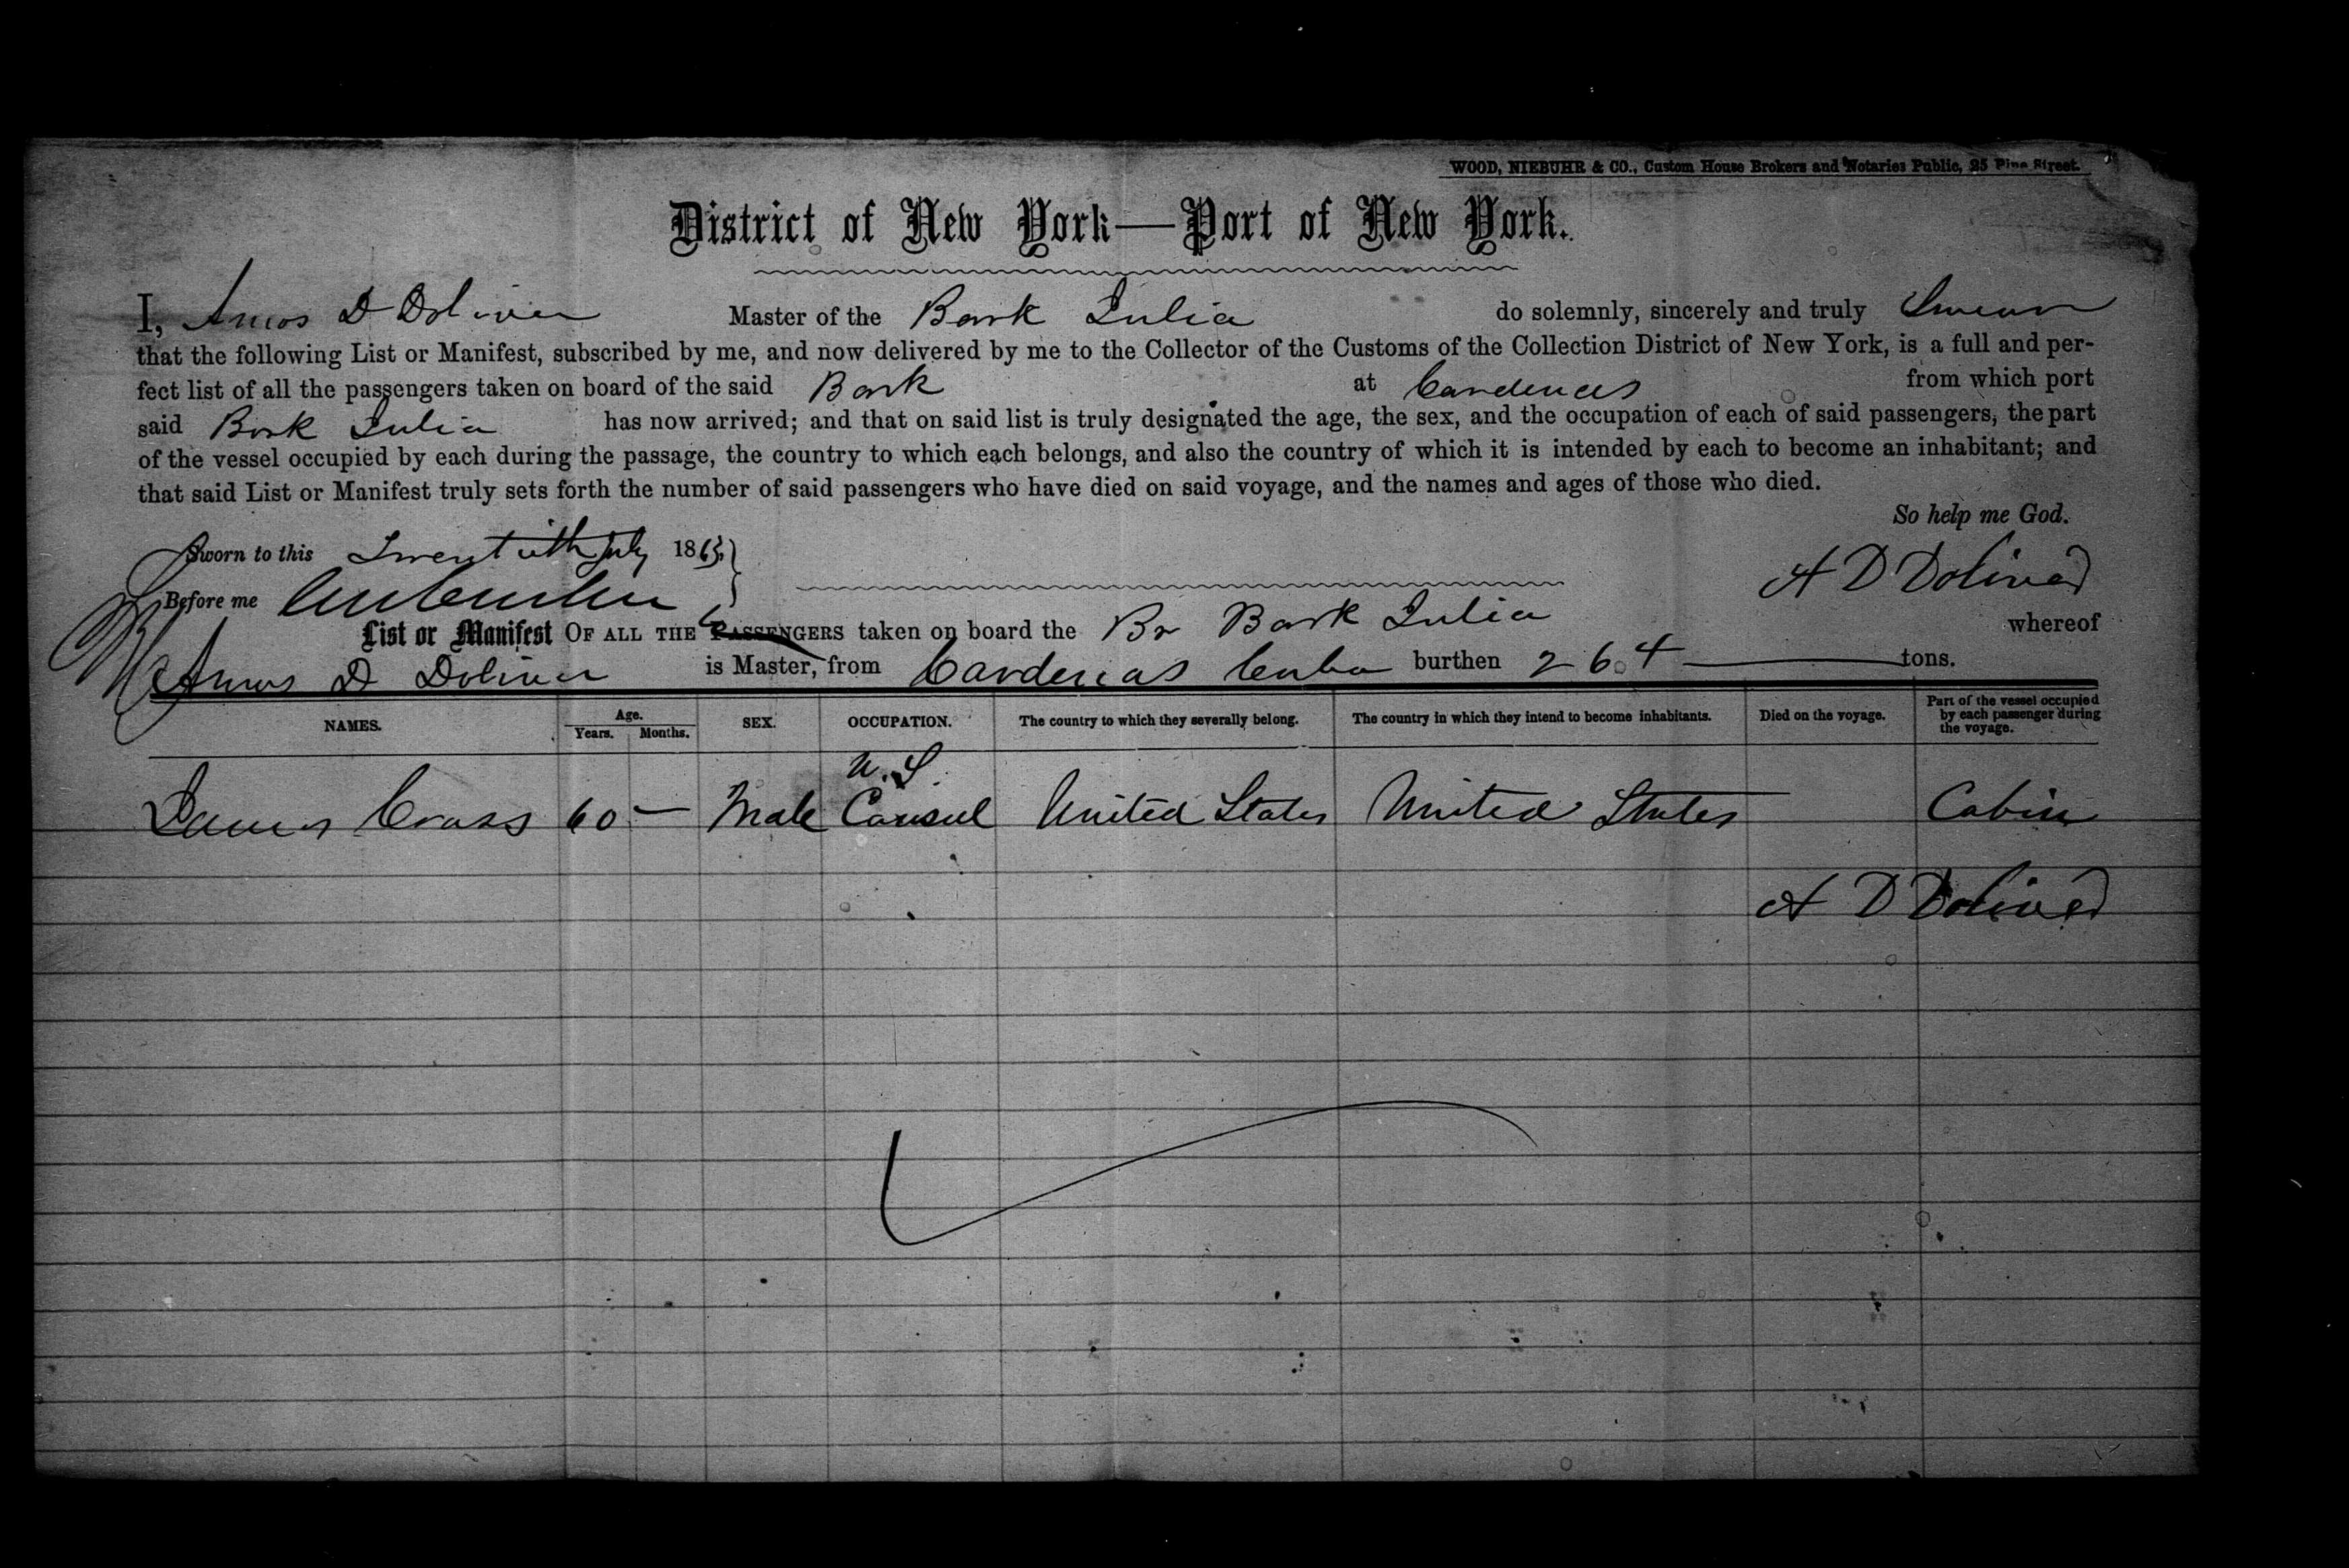 WOOD, NIEBUHR & CO., Custom House Brokers and Notaries Public, 25 Pine Street.
District of New York—Port of New York.
I, Amos D Doliver Master of the Bark Julia do solemnly, sincerely and truly Swear
that the following List or Manifest, subscribed by me, and now delivered by me to the Collector of the Customs of the Collection District of New York, is a full and per-
fect list of all the passengers taken on board of the said Bark at Cardenas from which port
said Bark Julia has now arrived; and that on said list is truly designated the age, the sex, and the occupation of each of said passengers, the part
of the vessel occupied by each during the passage, the country to which each belongs, and also the country of which it is intended by each to become an inhabitant; and
that said List or Manifest truly sets forth the number of said passengers who have died on said voyage, and the names and ages of those who died.
So help me God.
Sworn to this Twentieth July 1863
A D Doliver
Before me
List or Manifest OF ALL THE PASSENGERS taken on board the Br Bark Julia whereof
Amos D Doliver is Master, from Cardenas Cuba burthen 264 tons.
NAMES. Age. Years. Months. SEX. OCCUPATION. The country to which they severally belong. The country in which they intend to become inhabitants. Died on the voyage. Part of the vessel occupied by each passenger during the voyage.
James Cross 60 — Male U.S. Consul United States United States Cabin
A D Doliver